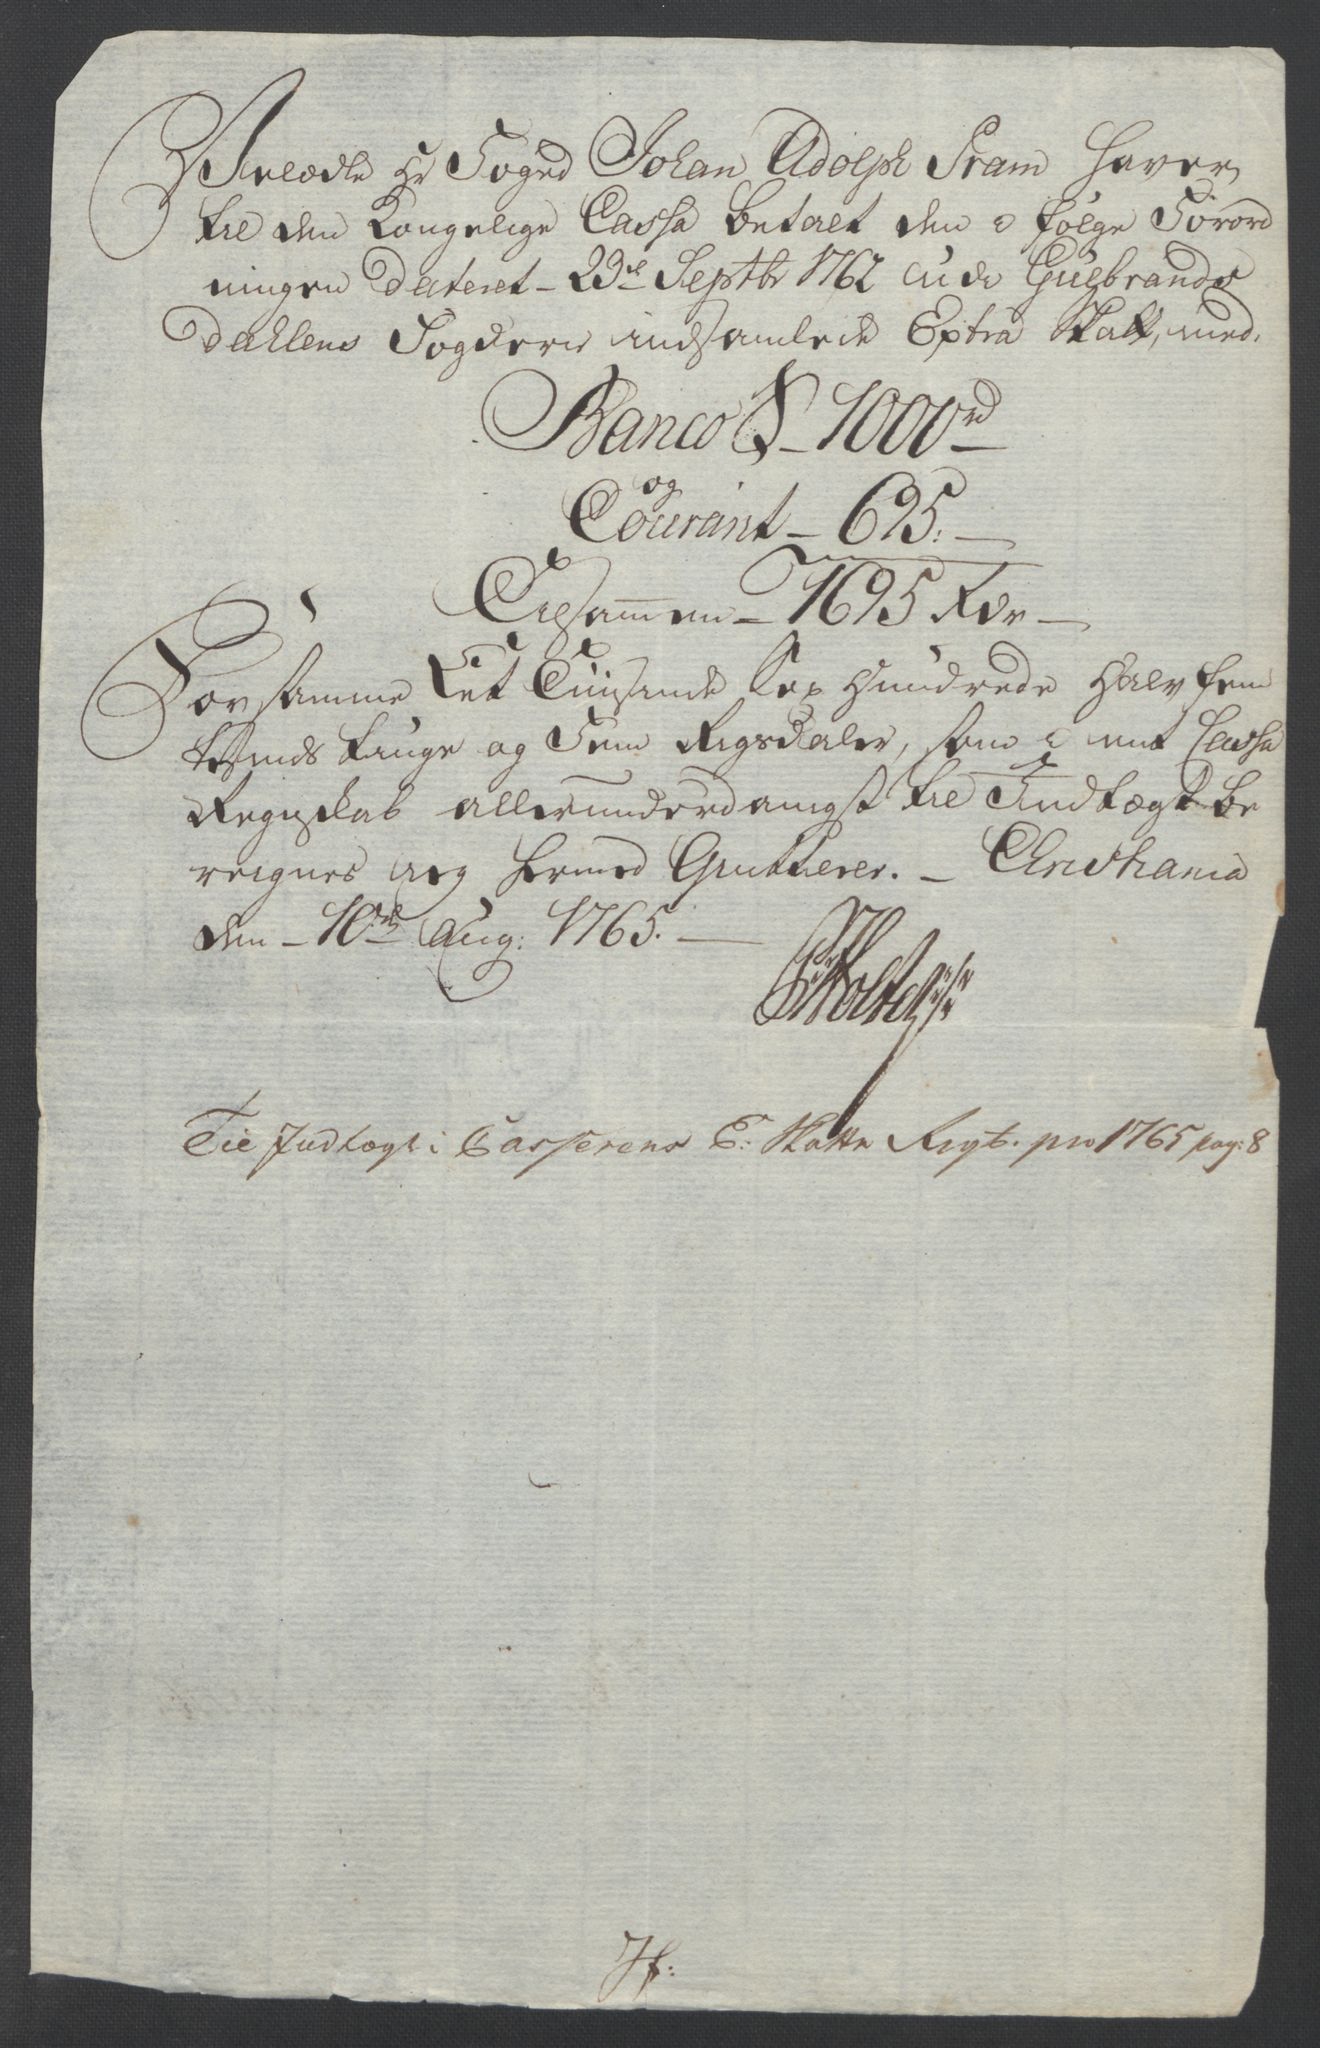 Velædle Hr Foged Johan Adolph Pram haver
til den Kongelige Cassa betalt den i følge Forord
ningen Dateret - 23de Septbr 1762 udi Gulbrands
Dahlens Fogderie indsamlede Extra Skatt, med.
Banco S - 1000rd
og
Courant - 695:
Tilsammen - 1695 Rdr -
For samme Eet Tuisende Sex Hundrede Halv fem
tesinds tiuge og Fem Rigsdaler, som i mit Cassa
Regnskab allerunderdanigst til Indtægt be
reignes jeg hermed Qvitterer. - Christiania
den - 10de Aug: 1765. -
Til Indtægt i Casserens E: Skatte Regsb. pro 1765 pag: 8